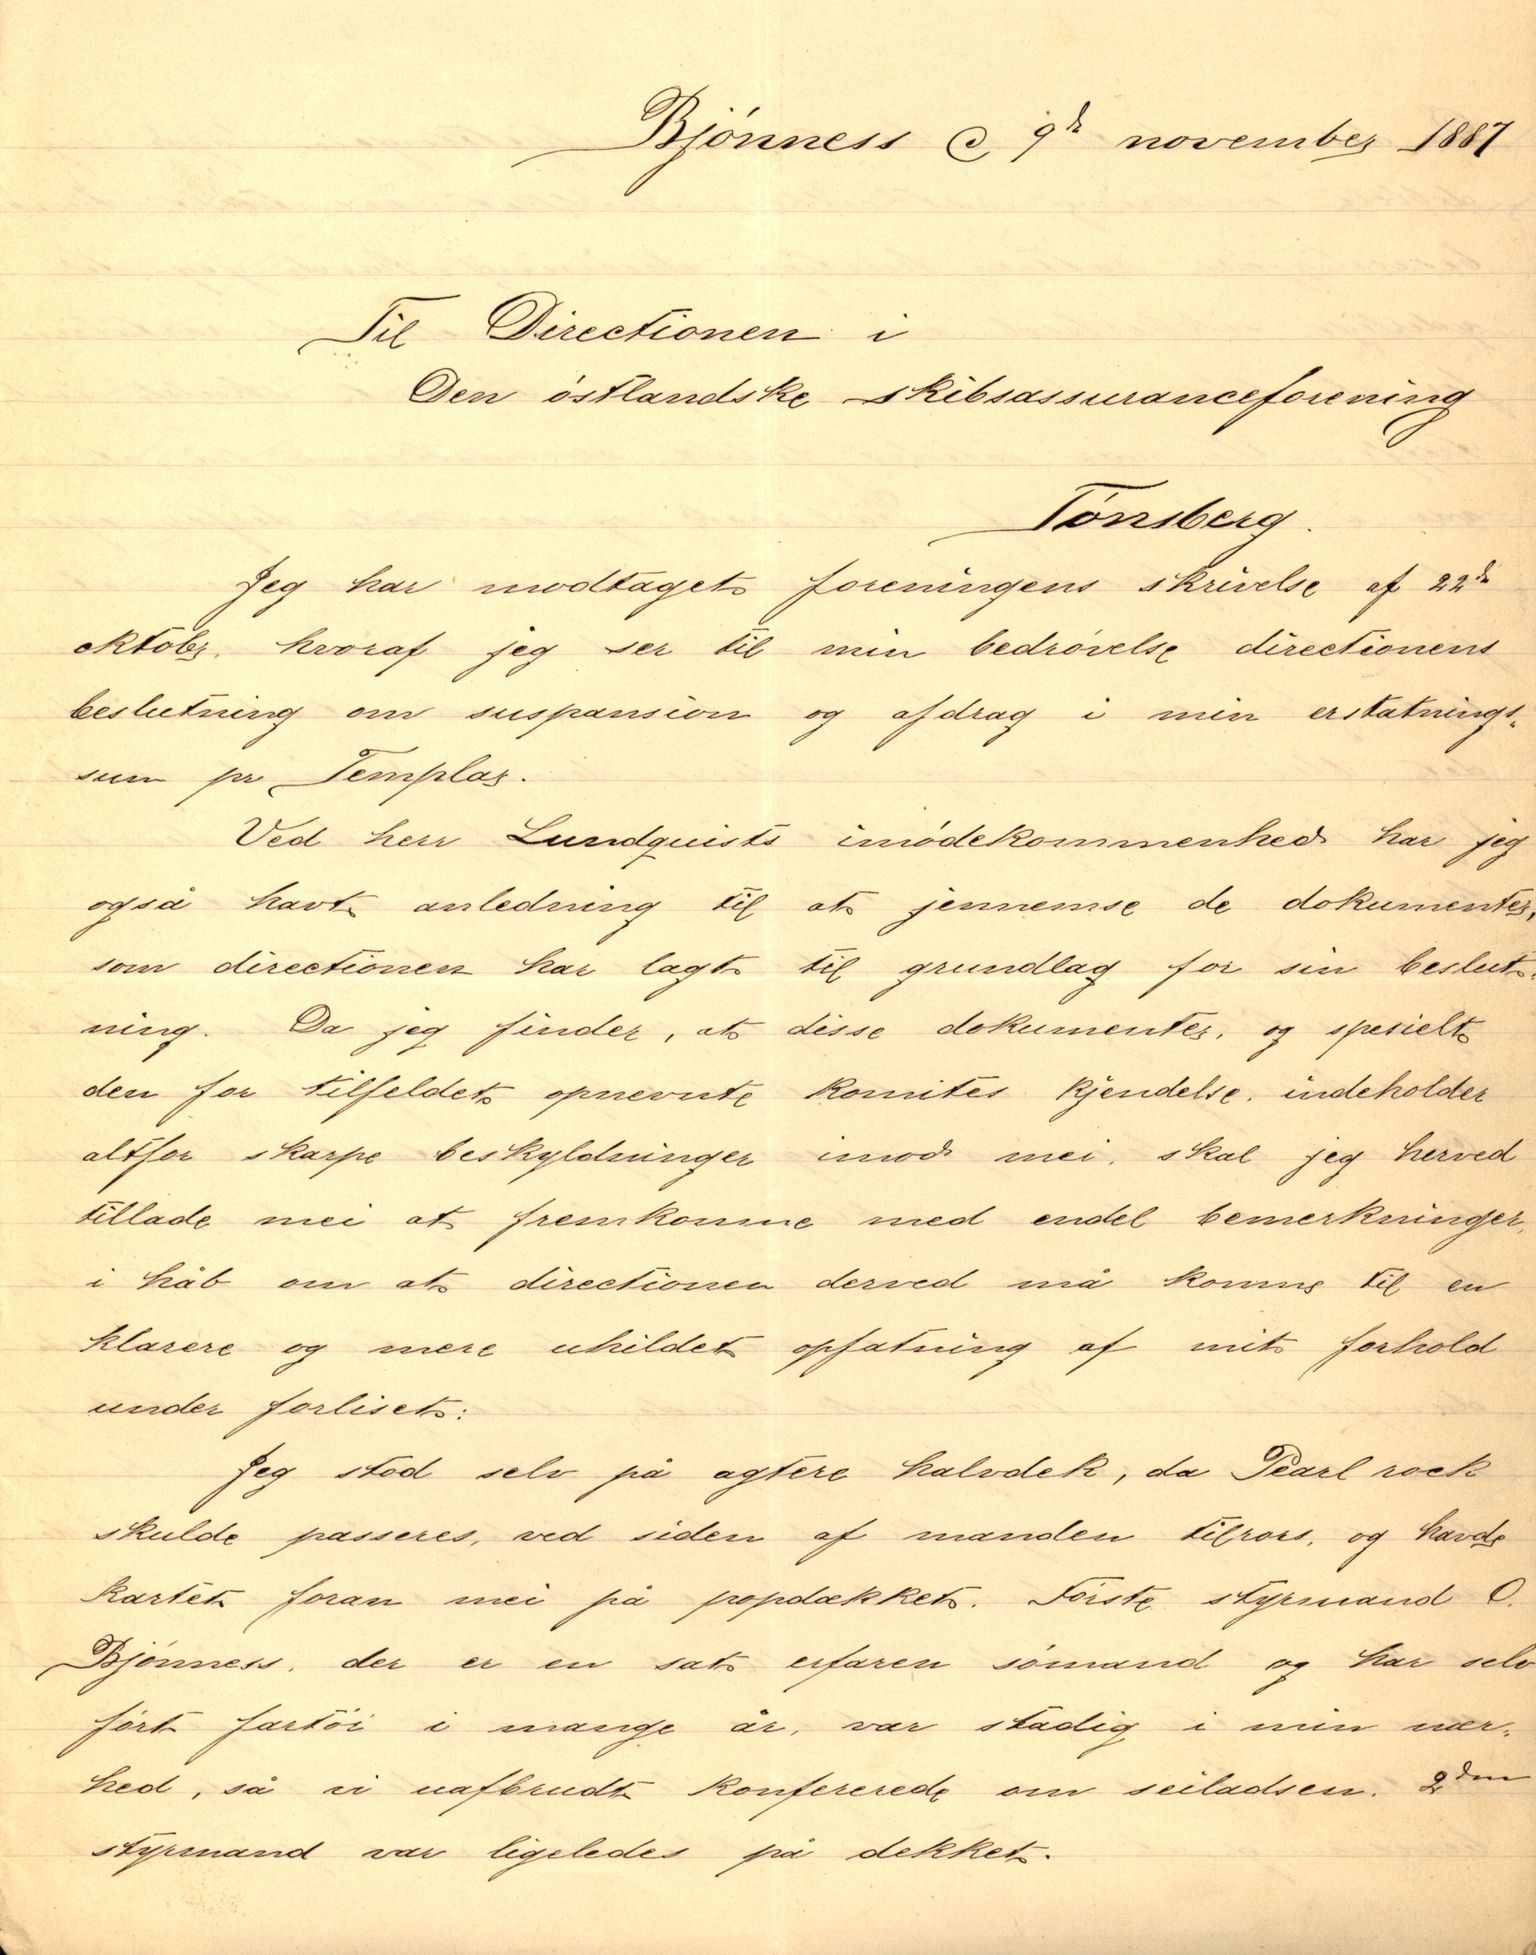 Bjönness d 9de november 1887
Til Directionen i
Den östlandske skibsassuranceforening
Tönsberg.
Jeg har modtaget foreningens skrivelse af 22de
oktober, hvoraf jeg ser til min bedrövelse directionens
beslutning om suspansion og afdrag i min erstatnings-
sum pr Templar.
Ved herr Lundquists imödekommenhed har jeg
også havt anledning til at jennemse de dokumenter,
som directionen har lagt til grundlag for sin beslut-
ning. Da jeg finder, at disse dokumenter, og spesielt
den for tilfeldet opnevnte komités kjendelse, indeholder
altfor skarpe beskyldninger imod mei, skal jeg herved
tillade mei at fremkomme med endel bemerkninger,
i håb om at directionen derved må komme til en
klarere og mere uhildet opfatning af mit forhold
under forliset:
Jeg stod selv på agtere halvdek, da Pearl rock
skulde passeres, ved siden af manden tilrors, og havde
kartet foran mei på popdækket. Förste styrmand O.
Bjönness, der er en sat erfaren sömand og har selv
fört fartöi i mange år, var stadig i min nær-
hed, så vi uafbrudt konfererede om seiladsen. 2den
styrmand var ligeledes på dekket.